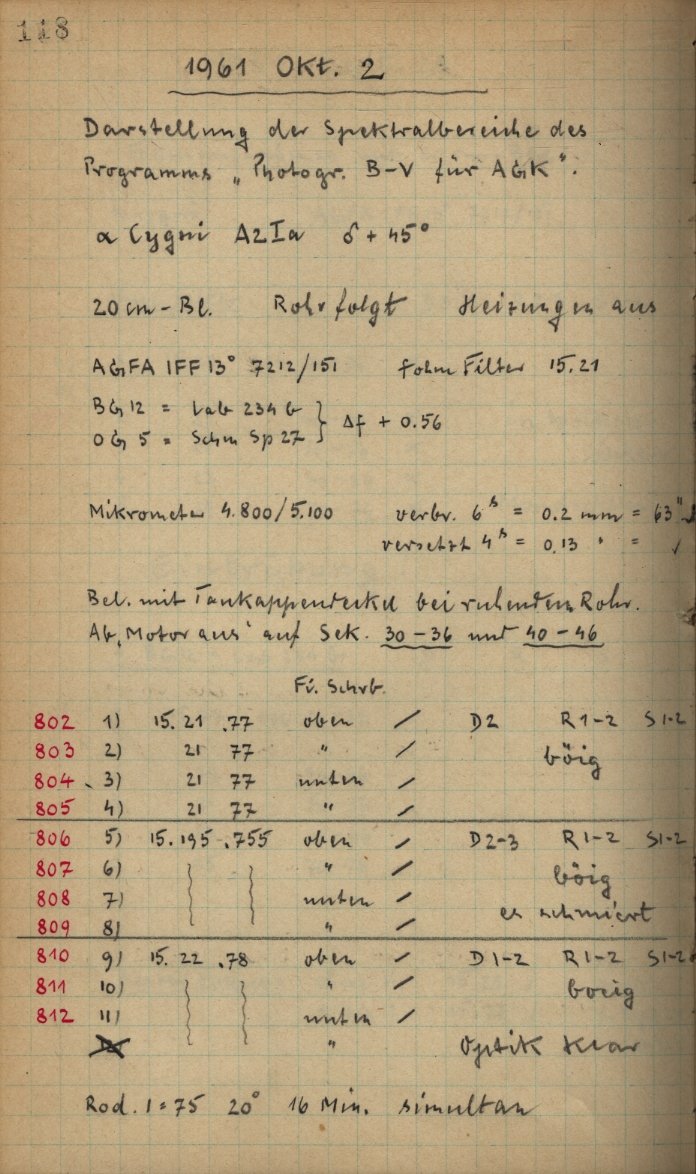 118
1961 Okt. 2
Darstellung der Spektralbereiche des
Programms „Photogr. B-V für AGK".
α Cygni A2Ia δ + 45°
20 cm - Bl. Rohr folgt Heizungen aus
AGFA IFF 13° 7212/151 fohm Filter 15.21
BG 12 = Lab 234 b } Δf + 0.56
OG 5 = Schm Sp 27
Mikrometer 4.800/5.100 verbr. 6ˢ = 0.2 mm = 63"
versetzt 4ˢ = 0.13 " = ✓
Bel. mit Tankappendeckel bei ruhendem Rohr.
Ab, Motor aus' auf Sek. 30-36 und 40-46
Fi. Schrb.
802 1) 15. 21 .77 oben / D2 R1-2 S1-2
803 2) 21 77 " / böig
804 3) 21 77 unten /
805 4) 21 77 " /
806 5) 15.195 .755 oben / D2-3 R1-2 S1-2
807 6) " / böig
808 7) unten / es schmiert
809 8) " /
810 9) 15. 22 .78 oben / D1-2 R1-2 S1-2
811 10) " / boeig
812 11) unten /
" Optik klar
Rod. 1=75 20° 16 Min. simultan